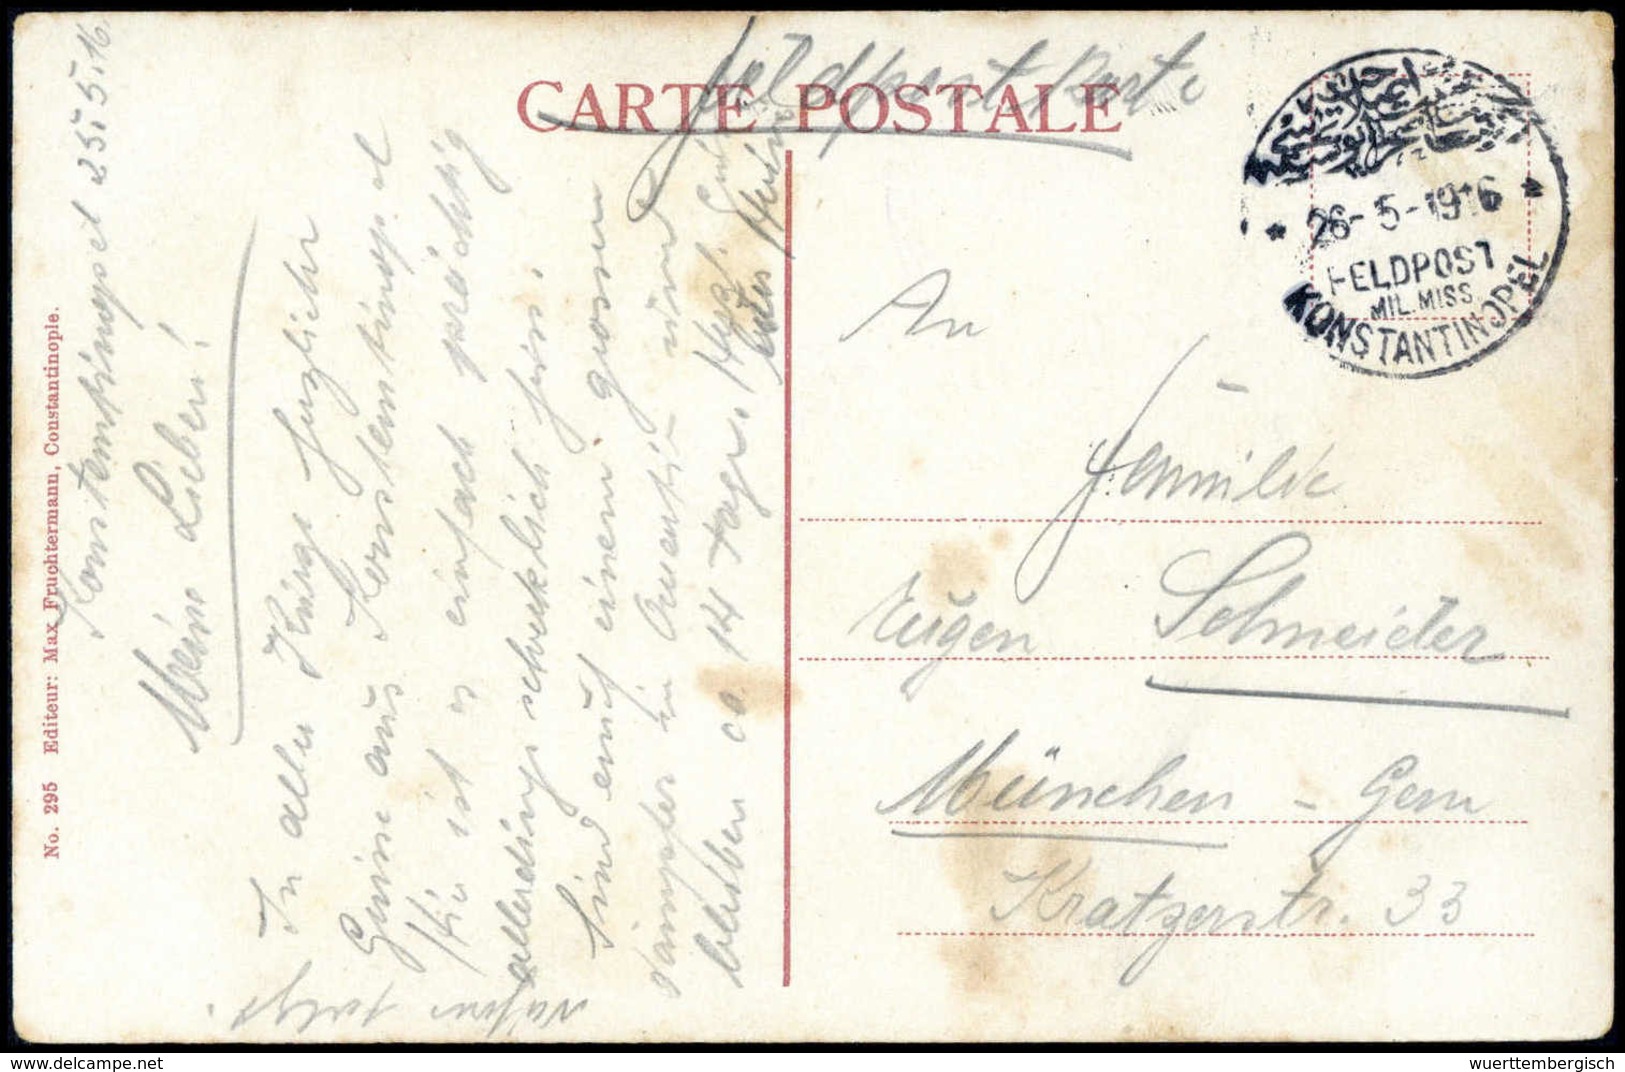 CARTE POSTALE
Feldpostkarte
26-5-1916
FELDPOST
MIL. MISS.
KONSTANTINOPEL
No. 295 Editeur: Max Fruchtermann, Constantinople.
Konstantinopel 25.5.16.
Meine Lieben!
In aller Kürze herzliche
Grüsse aus Konstantinopel
Hier ist es einfach prächtig
allerdings schrecklich heiss.
Sind auf einem grossen
Dampfer in und
bleiben ca 14 Tage. Herzl.
An
Familie
Eugen Schneider
München - Gern
Kratzerstr. 33
delcampe.net
wuerttembergisch